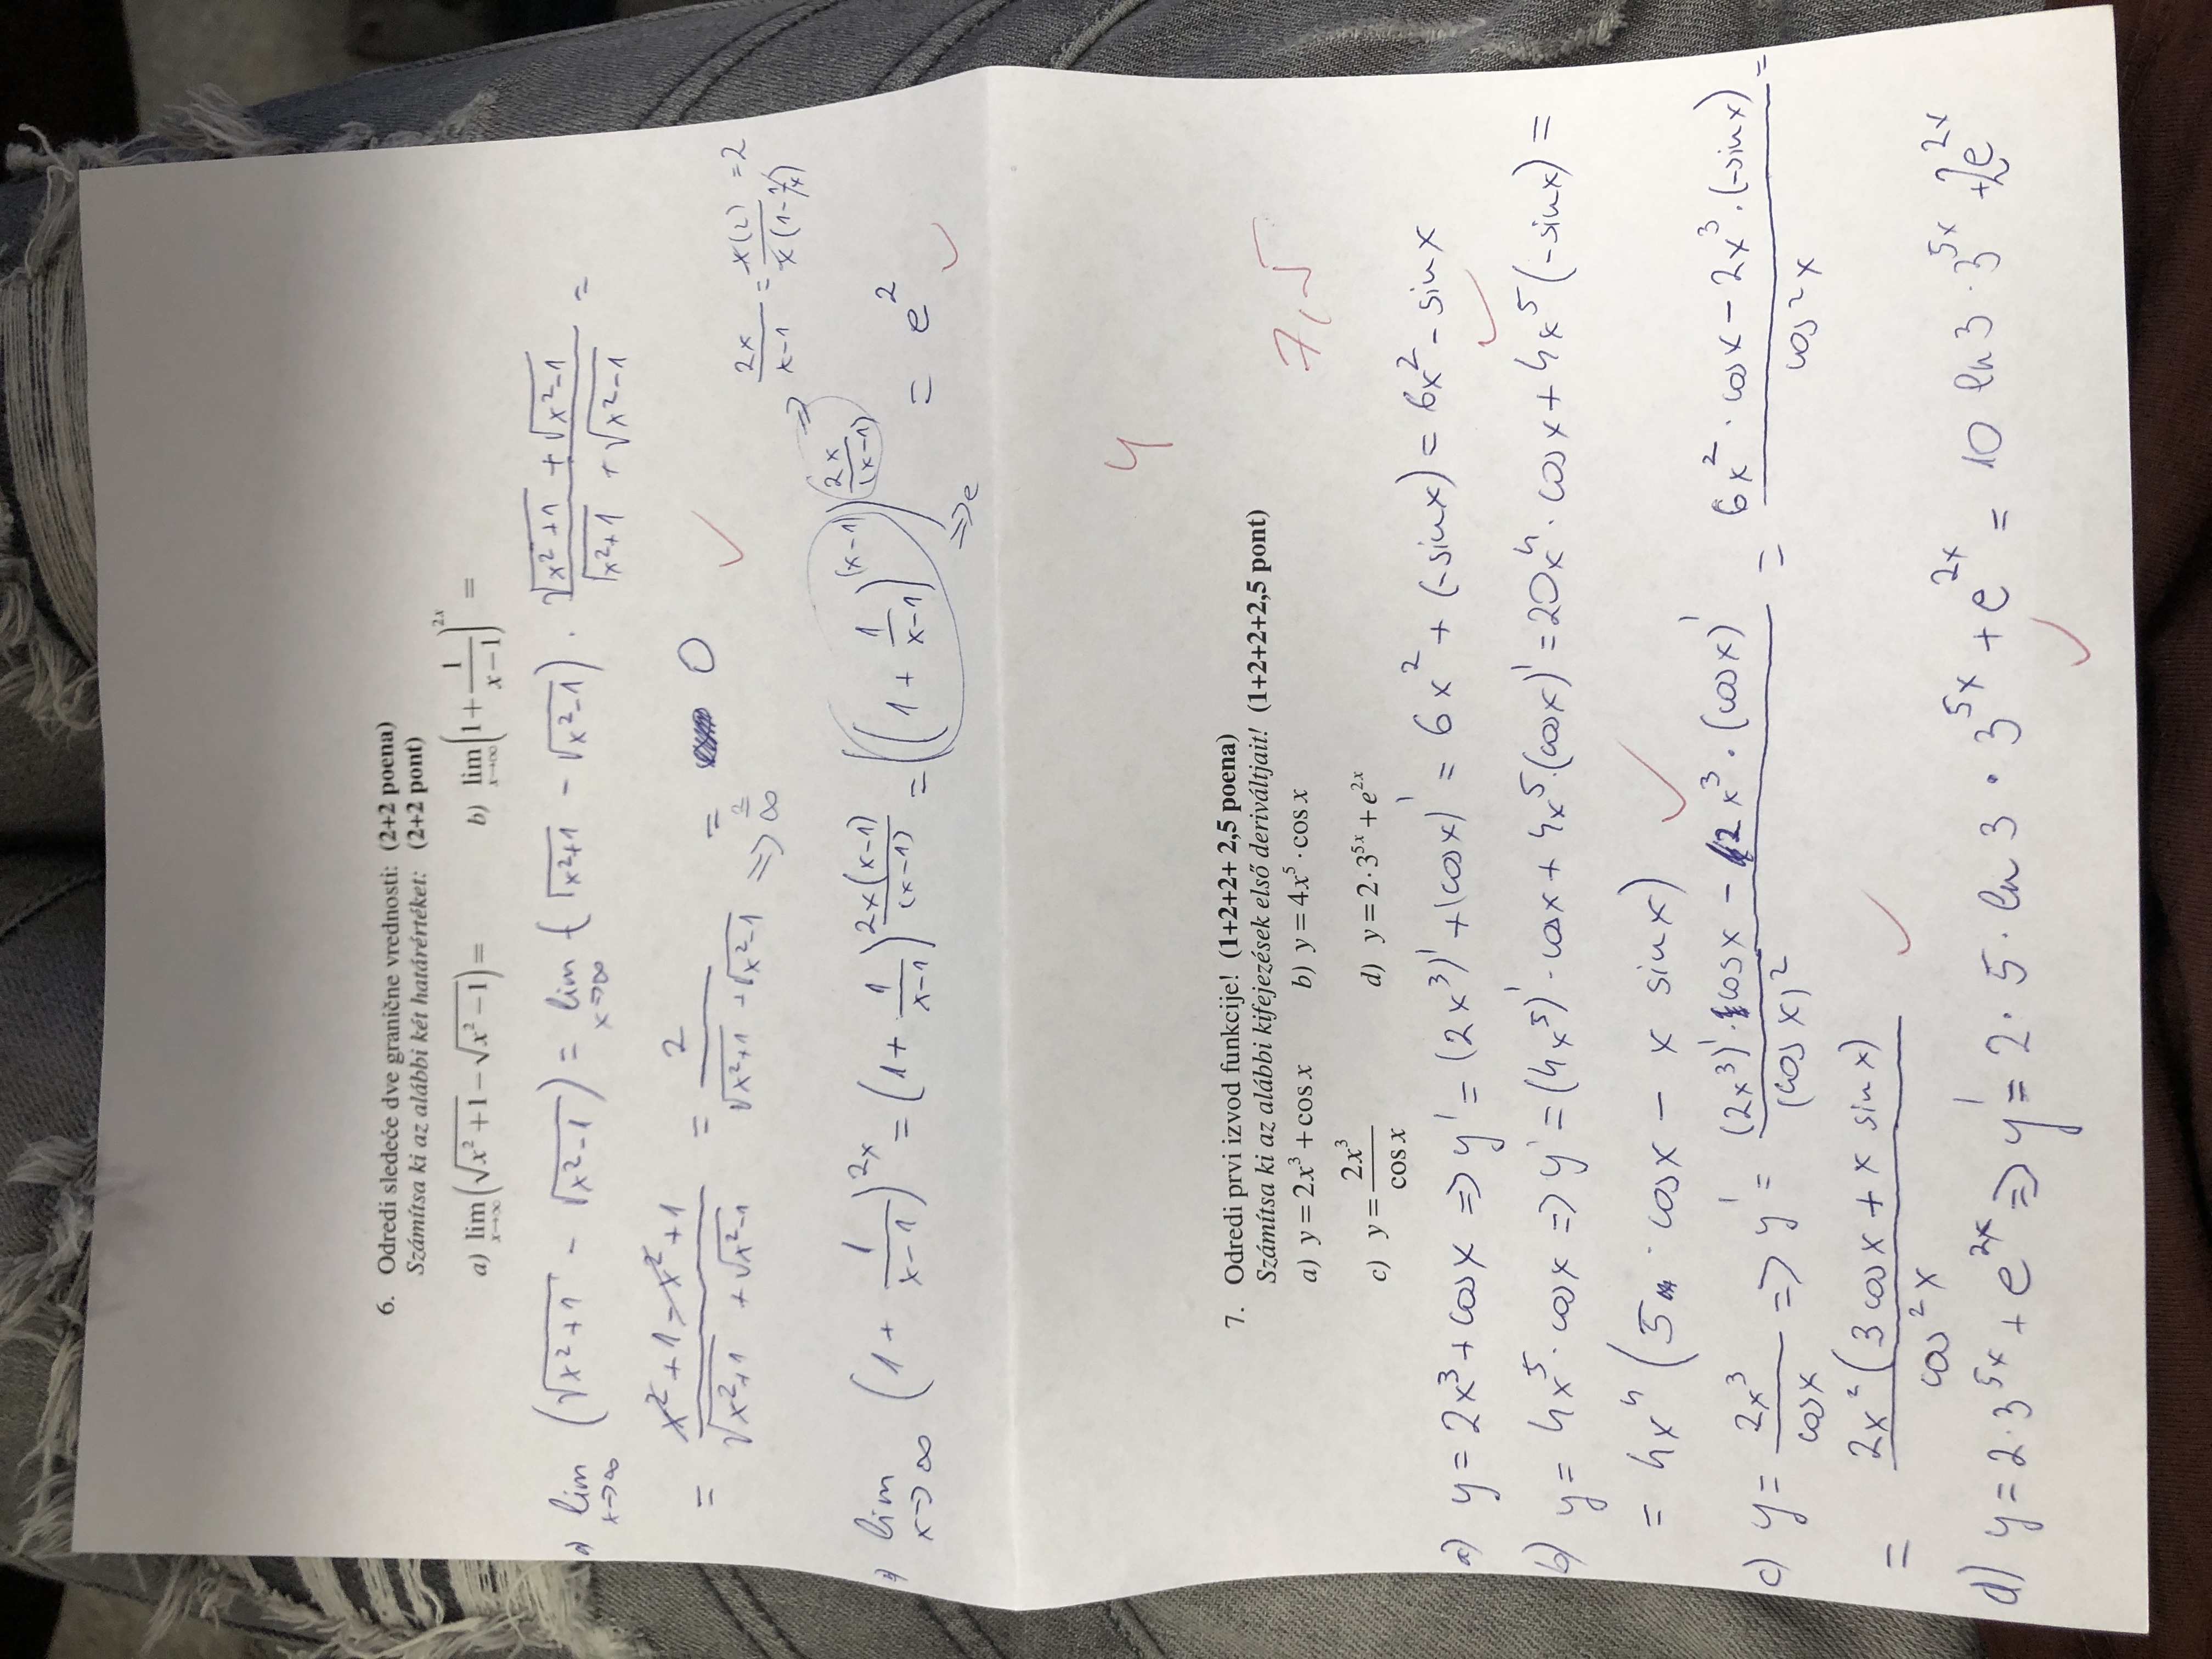 6. Odredi sledeće dve granične vrednosti: (2+2 poena)
Számítsa ki az alábbi két határértéket: (2+2 pont)
a) lim x→∞ (√(x²+1) − √(x²−1)) = b) lim x→∞ (1 + 1/(x−1))^(2x) =
a) lim x→∞ (√(x²+1) − √(x²−1)) = lim x→∞ (√(x²+1) − √(x²−1)) · (√(x²+1) + √(x²−1))/(√(x²+1) + √(x²−1)) =
= (x²+1−x²+1)/(√(x²+1) + √(x²−1)) = 2/(√(x²+1) + √(x²−1)) ⇒ 2/∞ = 0 ✓
⇒ 2x/(x−1) = x(2)/(x(1−1/x)) = 2
lim x→∞ (1 + 1/(x−1))^(2x) = (1 + 1/(x−1))^(2x(x−1)/(x−1)) = ((1 + 1/(x−1))^(x−1))^(2x/(x−1)) = e² ✓
⇒ e
4
7. Odredi prvi izvod funkcije! (1+2+2+ 2,5 poena)
Számítsa ki az alábbi kifejezések első deriváltjait! (1+2+2+2,5 pont)
7,5
a) y = 2x³ + cos x b) y = 4x⁵ · cos x
c) y = 2x³/cos x d) y = 2·3^(5x) + e^(2x)
a) y = 2x³ + cosx ⇒ y' = (2x³)' + (cosx)' = 6x² + (−sinx) = 6x² − sinx ✓
b) y = 4x⁵ · cosx ⇒ y' = (4x⁵)' · cosx + 4x⁵·(cosx)' = 20x⁴ · cosx + 4x⁵(−sinx) =
= 4x⁴ (5 · cosx − x sinx) ✓
c) y = 2x³/cosx ⇒ y' = ((2x³)' · cosx − 2x³ · (cosx)')/(cosx)² = (6x² · cosx − 2x³ · (−sinx))/cos²x =
= 2x²(3cosx + x sinx)/cos²x ✓
d) y = 2·3^(5x) + e^(2x) ⇒ y' = 2 · 5 · ln 3 · 3^(5x) + e^(2x) = 10 ln 3 · 3^(5x) + 2e^(2x) ✓